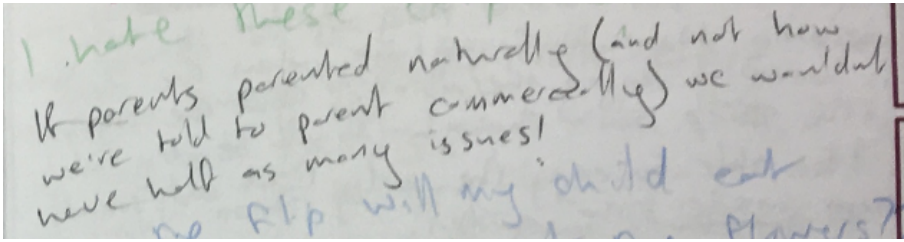 I hate these
If parents parented naturally (and not how
we're told to parent commercially) we wouldnt
have half as many issues!
flip will my child eat
flowers?